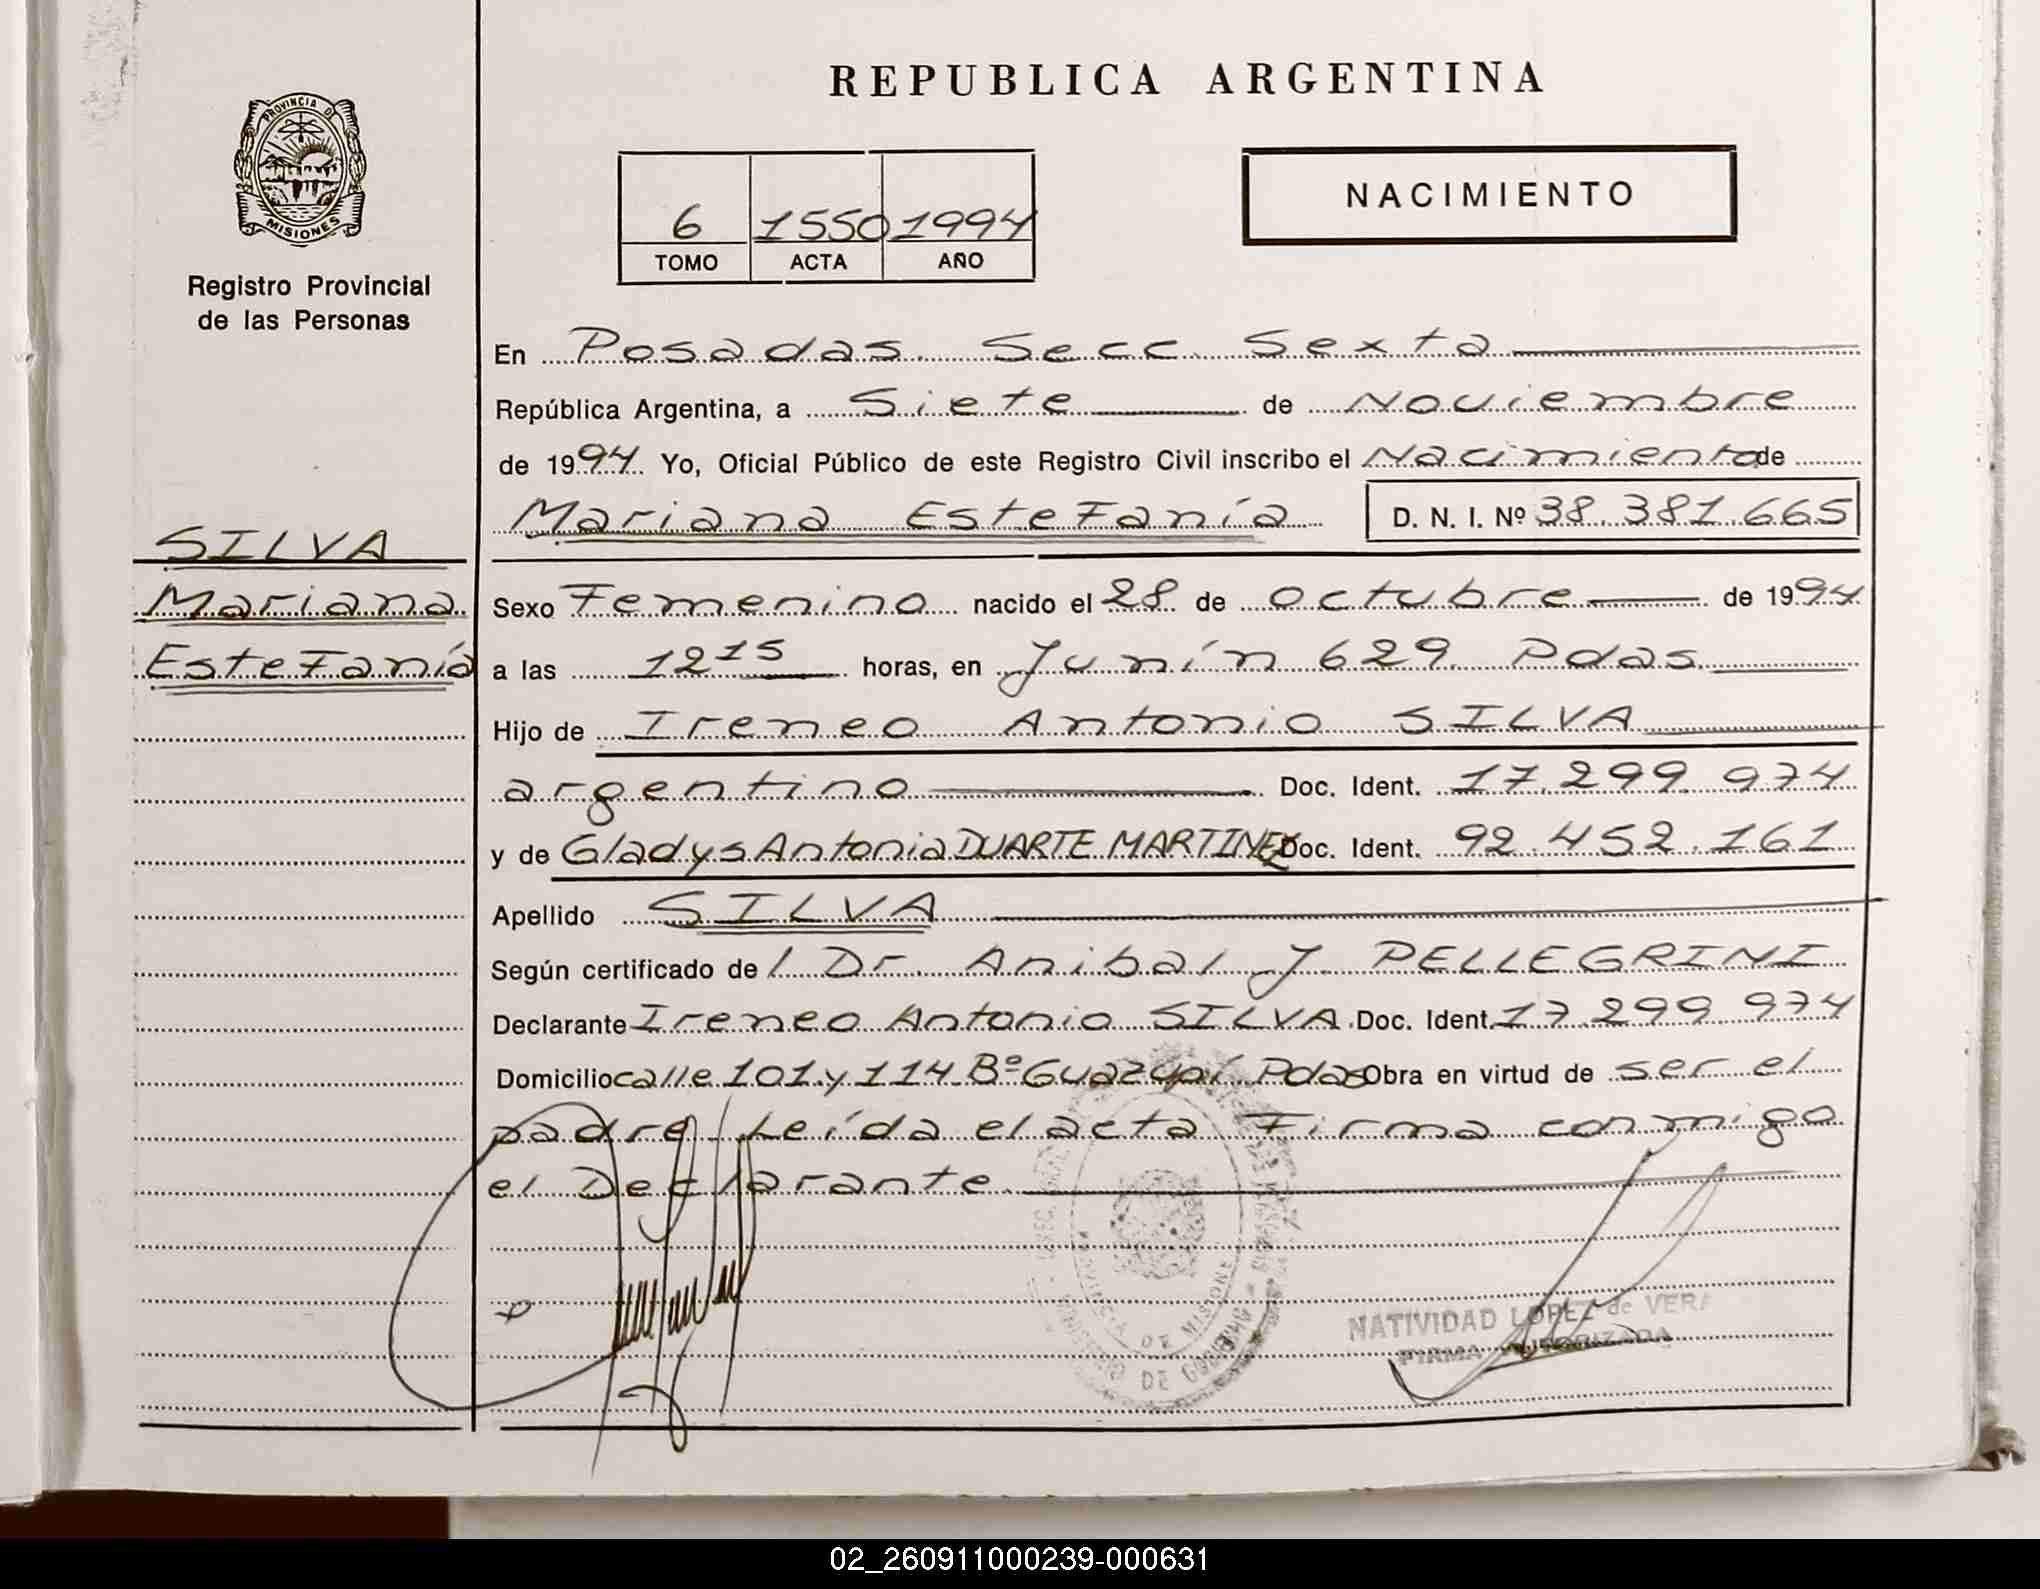 REPUBLICA ARGENTINA
PROVINCIA DE
MISIONES
Registro Provincial
de las Personas
6 1550 1994
TOMO ACTA AÑO
NACIMIENTO
En Posadas Secc Sexta
República Argentina, a Siete de Noviembre
de 1994 Yo, Oficial Público de este Registro Civil inscribo el Nacimiento de
Mariana Estefanía D. N. I. Nº 38.381.665
SILVA
Mariana
Estefanía
Sexo Femenino nacido el 28 de octubre de 1994
a las 12 15 horas, en Junín 629 Pdas
Hijo de Ireneo Antonio SILVA
argentino Doc. Ident. 17.299.974
y de Gladys Antonia DUARTE MARTINEZ Doc. Ident. 92.452.161
Apellido SILVA
Según certificado de l Dr. Anibal J PELLEGRINI
Declarante Ireneo Antonio SILVA Doc. Ident. 17.299 974
Domicilio calle 101 y 114 Bº Guazupí Pdas Obra en virtud de ser el
padre Leída el acta Firma conmigo
el Declarante
PROVINCIA DE MISIONES
MINISTERIO DE GOBIERNO
NATIVIDAD LOPEZ de VERA
FIRMA AUTORIZADA
02_260911000239-000631